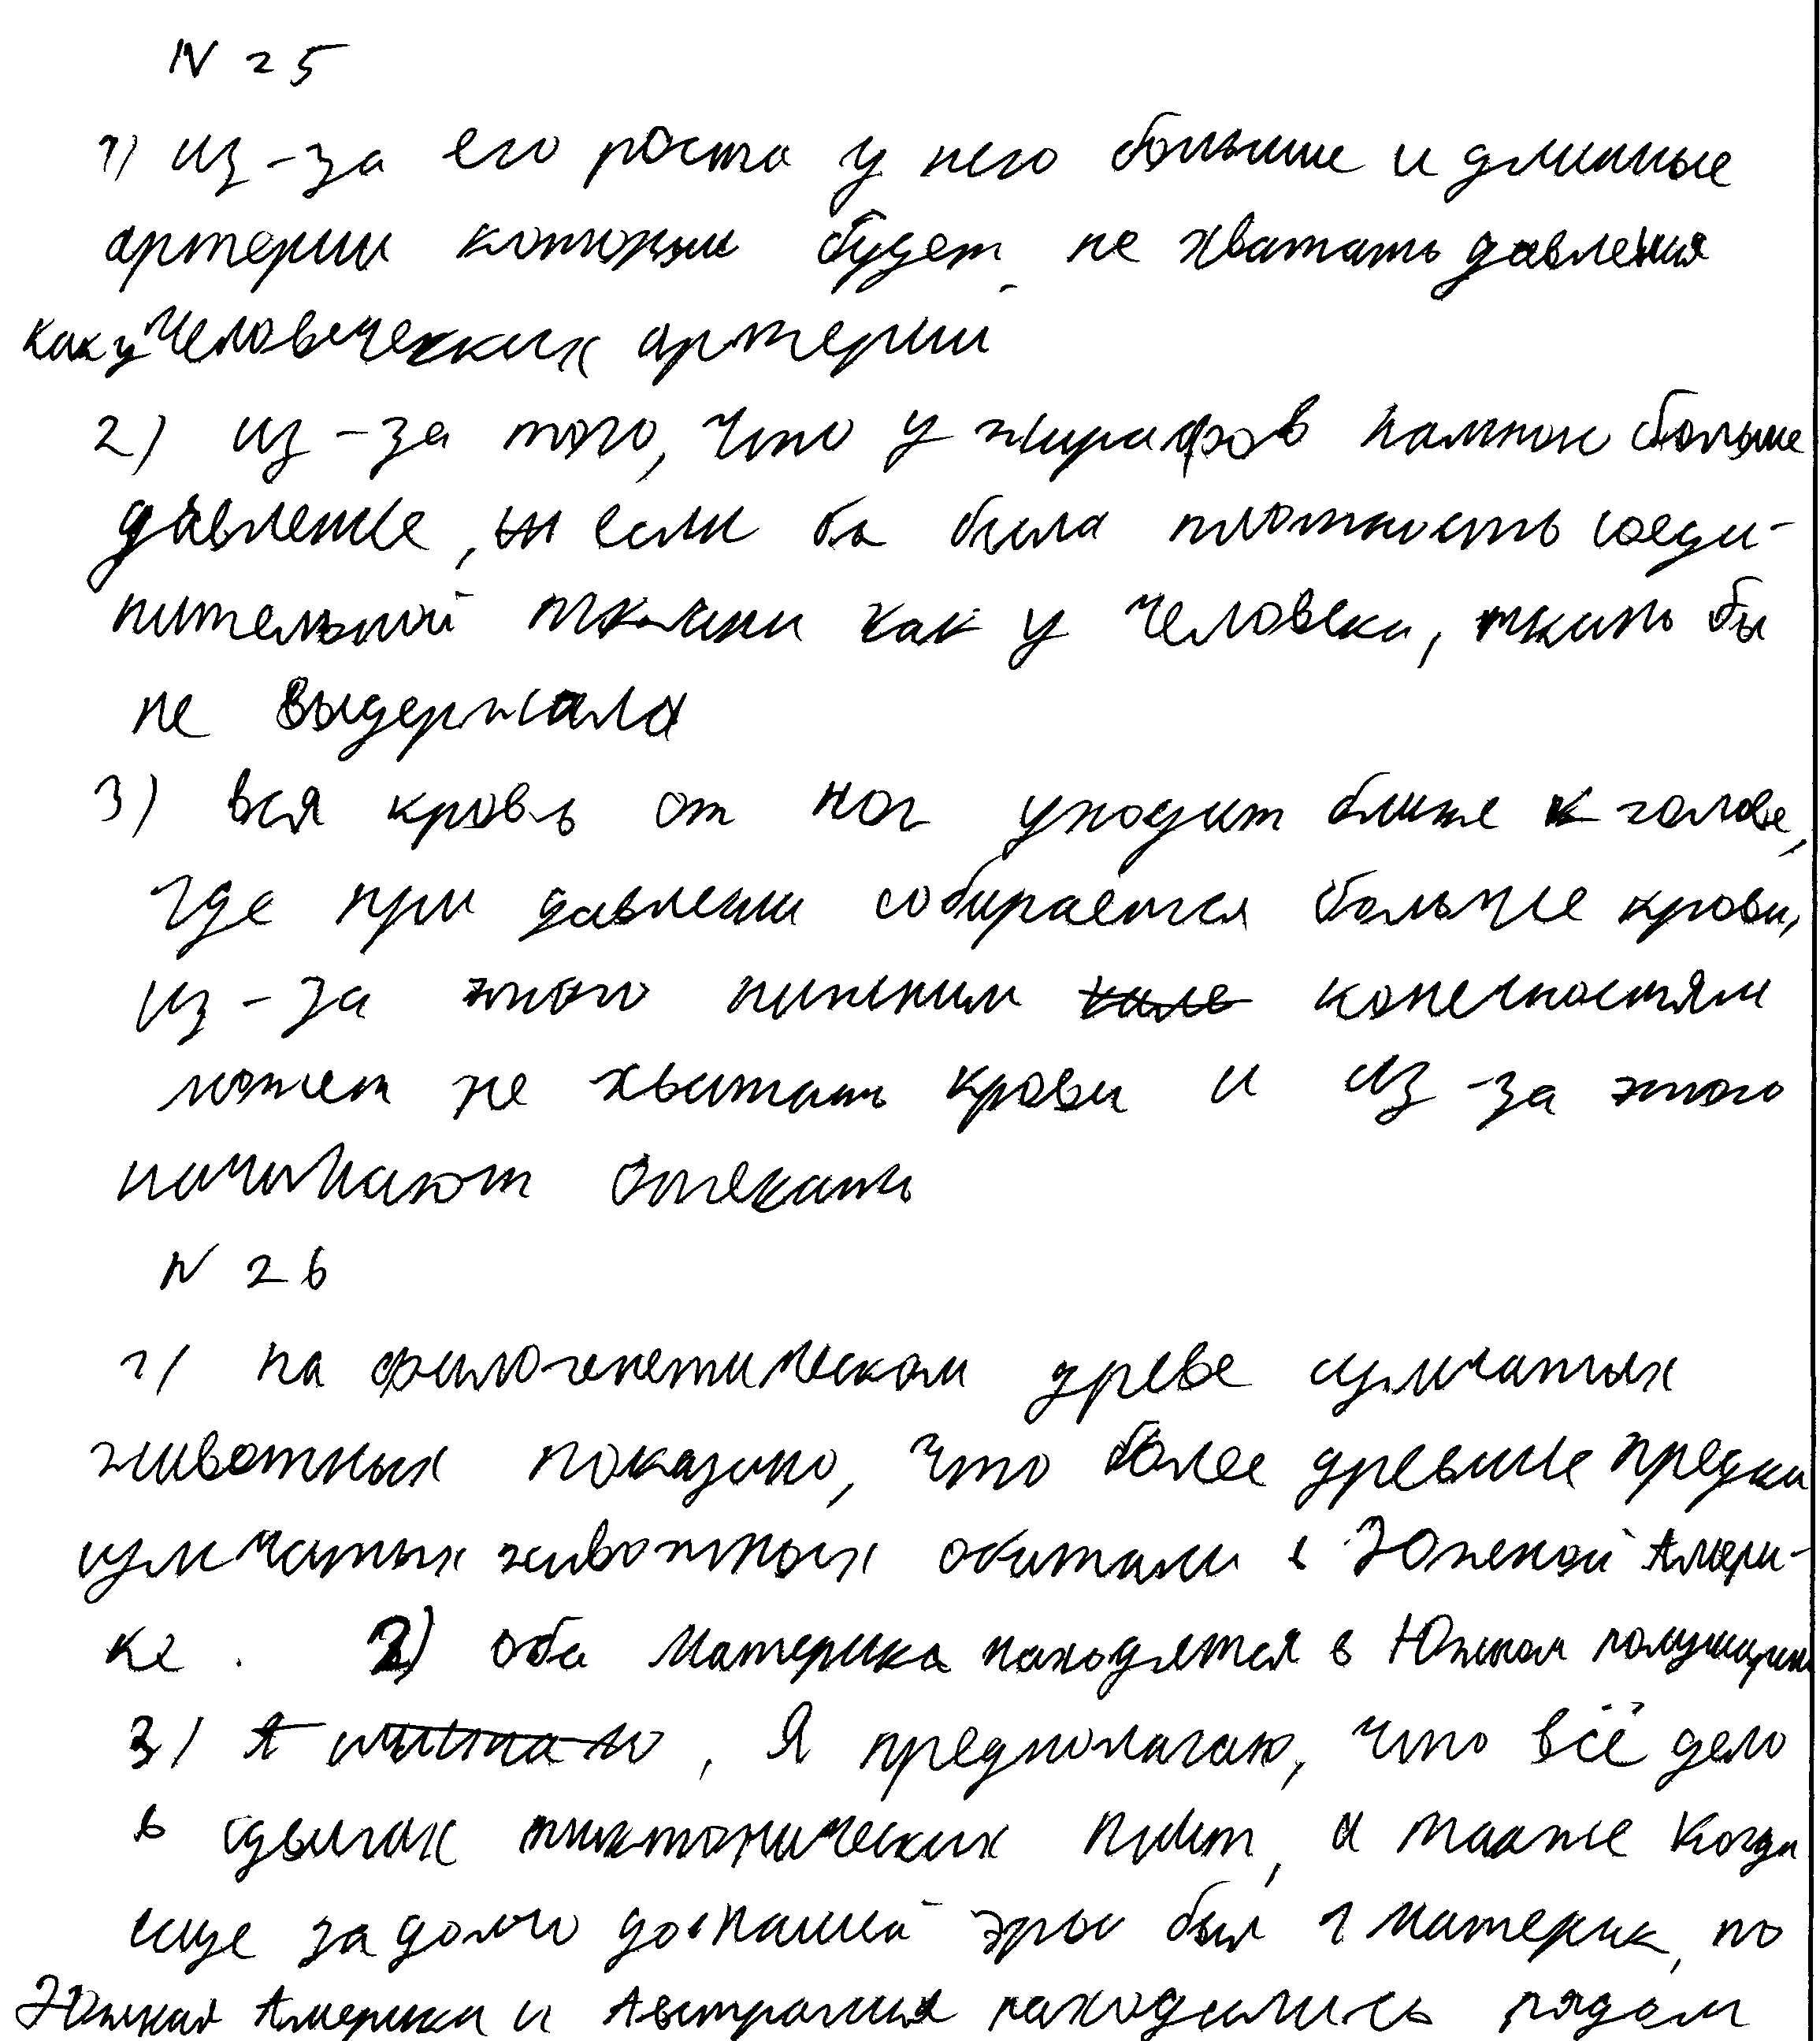 N 25
1) из-за его роста у него больше и длинные
артерии которым будет не хватать давления
как у человеческих артерий
2) из-за того, что у жирафов намного больше
давление, если бы была плотность соеди-
нительной ткани как у человека, ткань бы
не выдержала
3) вся кровь от ног уходит ближе к голове,
где при давлении собирается больше крови,
из-за этого нижним конечностям
может не хватать крови и из-за этого
начинают отекать
N 26
1) на филогенетическом древе сумчатых
животных показано, что более древние предки
сумчатых животных обитали в Южной Амери-
ке. 2) оба материка находятся в Южном полушарии
3) , Я предполагаю, что всё дело
в сдвигах тиктонических плит, а также когда
еще задолго до нашей эры был 1 материк, но
Южная Америка и Австралия находились рядом